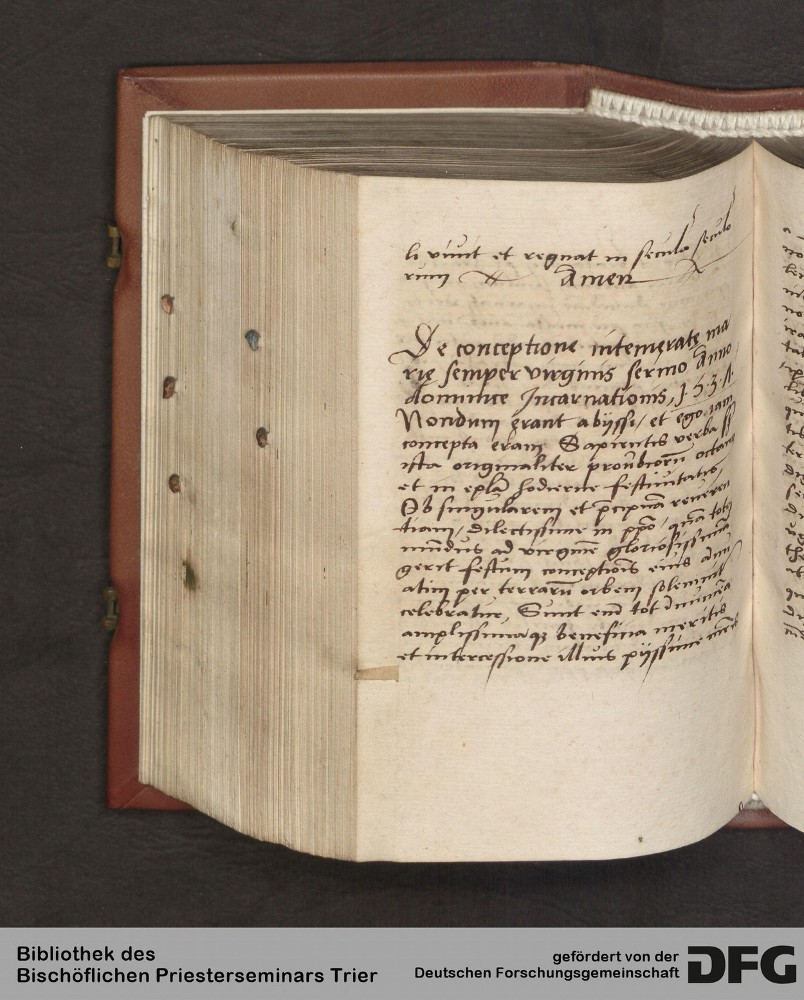 li viuit et regnat in seculoꝝ seculo
rum Amen
De conceptione intemerate ma
rię semper virginis sermo Anno
dominice Incarnationis, 1534
Nondum erant abyssi, et ego iam
concepta eram Sapientis verba ss
ista originaliter prouerbiorū octauo
et in epl̄a hodierne festiuitatis,
Ob singularem et p̄cipuā reueren
tiam, dilectissime in xp̄o, quā totꝰ
mūdus ad virginē gloriosissimā
gerit festum conceptiōis eius ānu
atim per terrarū orbem solemnit̄
celebratur, Sunt enī tot
amplissimaqꝫ benefitia meritis
et intercessione illius pijssime
Bibliothek des
Bischöflichen Priesterseminars Trier
gefördert von der
Deutschen Forschungsgemeinschaft
DFG